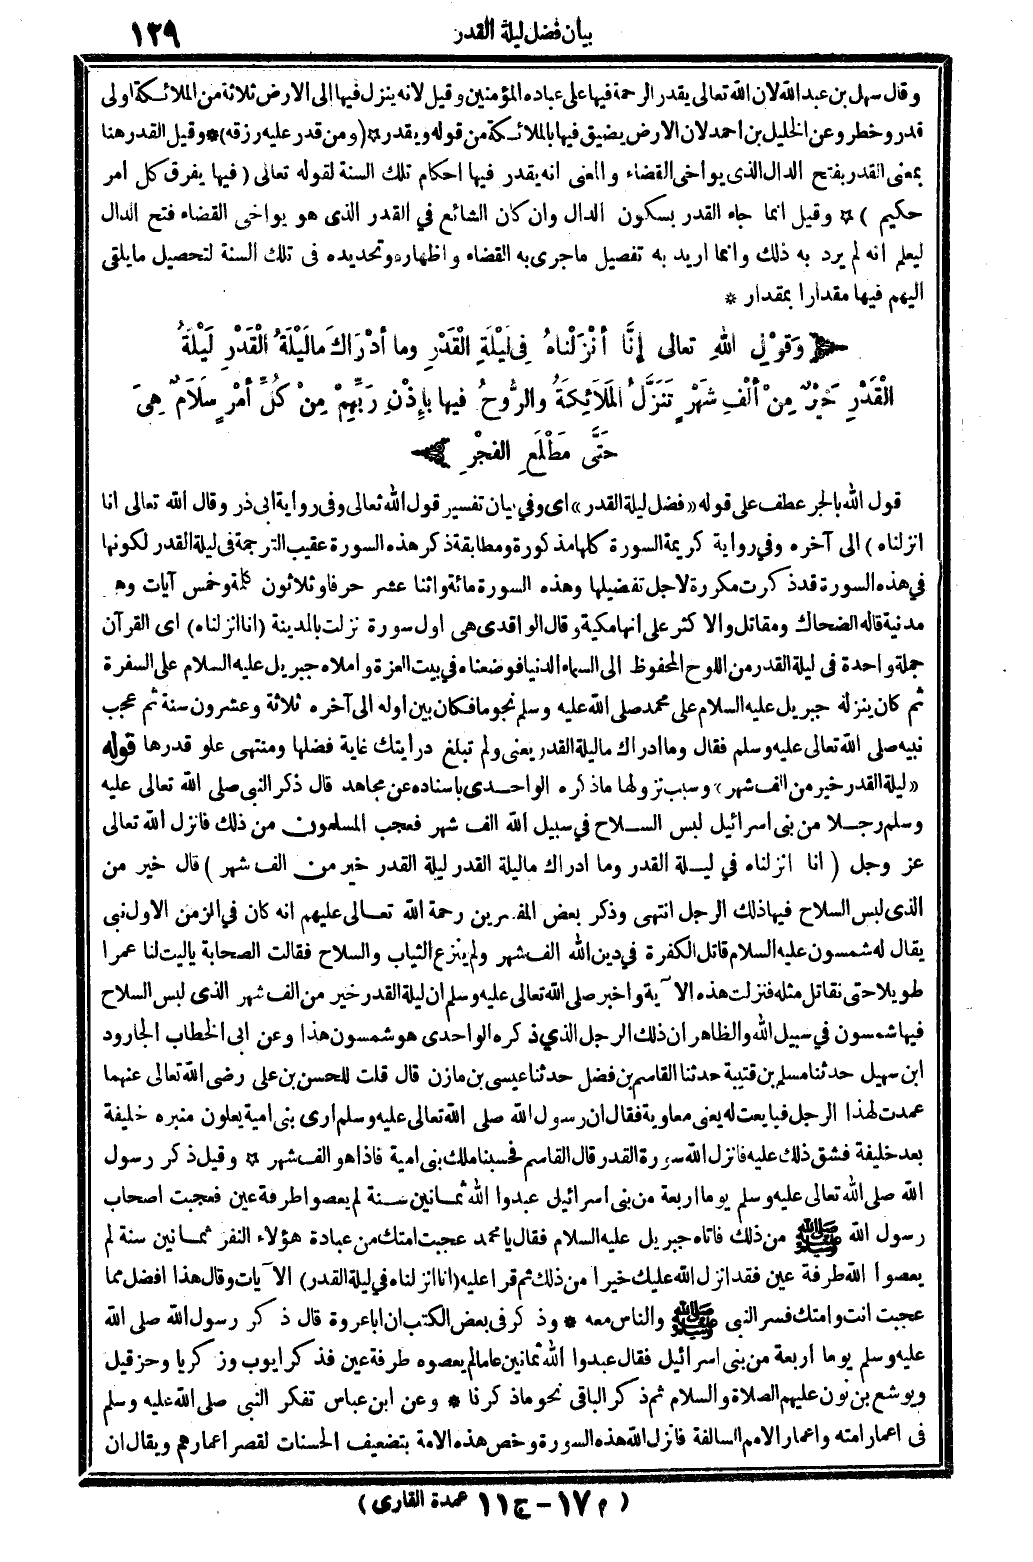 بيان فضل ليلة القدر ١٢٩
وقال سهل بن عبدالله لان الله تعالى يقدر الرحمة فيها على عباده المؤمنين وقيل لانه ينزل فيها الى الارض ثلاثة من الملائكة اولى
قدر وخطر وعن الخليل بن احمد لان الارض يضيق فيها بالملائكة من قوله ويقدر * (ومن قدر عليه رزقه) * وقيل القدر هنا
بمعنى القدر بفتح الدال الذى يواخى القضاء والمعنى انه يقدر فيها احكام تلك السنة لقوله تعالى ( فيها يفرق كل امر
حكيم ) * وقيل انما جاء القدر بسكون الدال وان كان الشائع في القدر الذى هو يواخى القضاء فتح الدال
ليعلم انه لم يرد به ذلك وانما اريد به تفصيل ماجرى به القضاء واظهاره وتحديده فى تلك السنة لتحصيل مايلقى
اليهم فيها مقدارا بمقدار *
وَقَوْلِ اللهِ تعالى إِنَّا أَنْزَلْنَاهُ فِى لَيْلَةِ الْقَدْرِ وما أَدْرَاكَ مالَيْلَةُ الْقَدْرِ لَيْلَةُ
الْقَدْرِ خَيْرٌ مِنْ أَلْفِ شَهْرٍ تَنَزَّلُ المَلَائِكَةُ والرُّوحُ فيها بِإِذْنِ رَبِّهِمْ مِنْ كُلِّ أَمْرٍ سَلَامٌ هِيَ
حَتَّى مَطْلَعِ الفَجْرِ
قول الله بالجر عطف على قوله «فضل ليلة القدر» اى وفي بيان تفسير قول الله تعالى وفى رواية ابى ذر وقال الله تعالى انا
انزلناه ) الى آخره وفي رواية كريمة السورة كلها مذكورة ومطابقة ذكر هذه السورة عقيب الترجمة فى ليلة القدر لكونها
في هذه السورة قد ذكرت مكررة لاجل تفضيلها وهذه السورة مائة واثنا عشر حرفا وثلاثون كلمة وخمس آيات وهـ
مدنية قاله الضحاك ومقاتل والاكثر على انها مكية وقال الواقدى هى اول سورة نزلت بالمدينة (انا انزلناه) اى القرآن
جملة واحدة فى ليلة القدر من اللوح المحفوظ الى السماء الدنيا فوضعناه في بيت العزة واملاه جبريل عليه السلام على السفرة
ثم كان ينزله جبريل عليه السلام على محمد صلى الله عليه وسلم نجوما فكان بين اوله الى آخره ثلاثة وعشرون سنة ثم عجب
نبيه صلى الله تعالى عليه وسلم فقال وما ادراك ماليلة القدر يعنى ولم تبلغ درايتك غاية فضلها ومنتهى علو قدرها قوله
«ليلة القدر خير من الف شهر» وسبب نزولها ماذكره الواحدى باسناده عن مجاهد قال ذكر النبى صلى الله تعالى عليه
وسلم رجلا من بنى اسرائيل لبس السلاح في سبيل الله الف شهر فعجب المسلمون من ذلك فانزل الله تعالى
عز وجل ( انا انزلناه في ليلة القدر وما ادراك ماليلة القدر ليلة القدر خير من الف شهر ) قال خير من
الذى لبس السلاح فيها ذلك الرجل انتهى وذكر بعض المفسرين رحمة الله تعالى عليهم انه كان في الزمن الاول نبى
يقال له شمسون عليه السلام قاتل الكفرة في دين الله الف شهر ولم ينزع الثياب والسلاح فقالت الصحابة ياليت لنا عمرا
طويلا حتى نقاتل مثله فنزلت هذه الآية واخبر صلى الله تعالى عليه وسلم ان ليلة القدر خير من الف شهر الذى لبس السلاح
فيها شمسون في سبيل الله والظاهر ان ذلك الرجل الذي ذكره الواحدى هو شمسون هذا وعن ابى الخطاب الجارود
ابن سهيل حدثنا مسلم بن قتيبة حدثنا القاسم بن فضل حدثنا عيسى بن مازن قال قلت للحسن بن على رضى الله تعالى عنهما
عمدت لهذا الرجل فبايعت له يعنى معاوية فقال ان رسول الله صلى الله تعالى عليه وسلم ارى بنى امية يعلون منبره خليفة
بعد خليفة فشق ذلك عليه فانزل الله سورة القدر قال القاسم فحسبنا ملك بنى امية فاذا هو الف شهر * وقيل ذكر رسول
الله صلى الله تعالى عليه وسلم يوما اربعة من بنى اسرائيل عبدوا الله ثمانين سنة لم يعصوا طرفة عين فعجبت اصحاب
رسول الله ﷺ من ذلك فاتاه جبريل عليه السلام فقال يا محمد عجبت امتك من عبادة هؤلاء النفر ثمانين سنة لم
يعصوا الله طرفة عين فقد انزل الله عليك خيرا من ذلك ثم قرا عليه (انا انزلناه في ليلة القدر) الآيات وقال هذا افضل مما
عجبت انت وامتك فسر النبى ﷺ والناس معه * وذكر فى بعض الكتب ان ابا عروة قال ذكر رسول الله صلى الله
عليه وسلم يوما اربعة من بنى اسرائيل فقال عبدوا الله ثمانين عاما لم يعصوه طرفة عين فذكر ايوب وزكريا وحزقيل
ويوشع بن نون عليهم الصلاة والسلام ثم ذكر الباقى نحو ماذكرنا * وعن ابن عباس تفكر النبى صلى الله عليه وسلم
فى اعمار امته واعمار الامم السالفة فانزل الله هذه السورة وخص هذه الامة بتضعيف الحسنات لقصر اعمارهم ويقال ان
( م ١٧ - ج ١١ عمدة القارى )